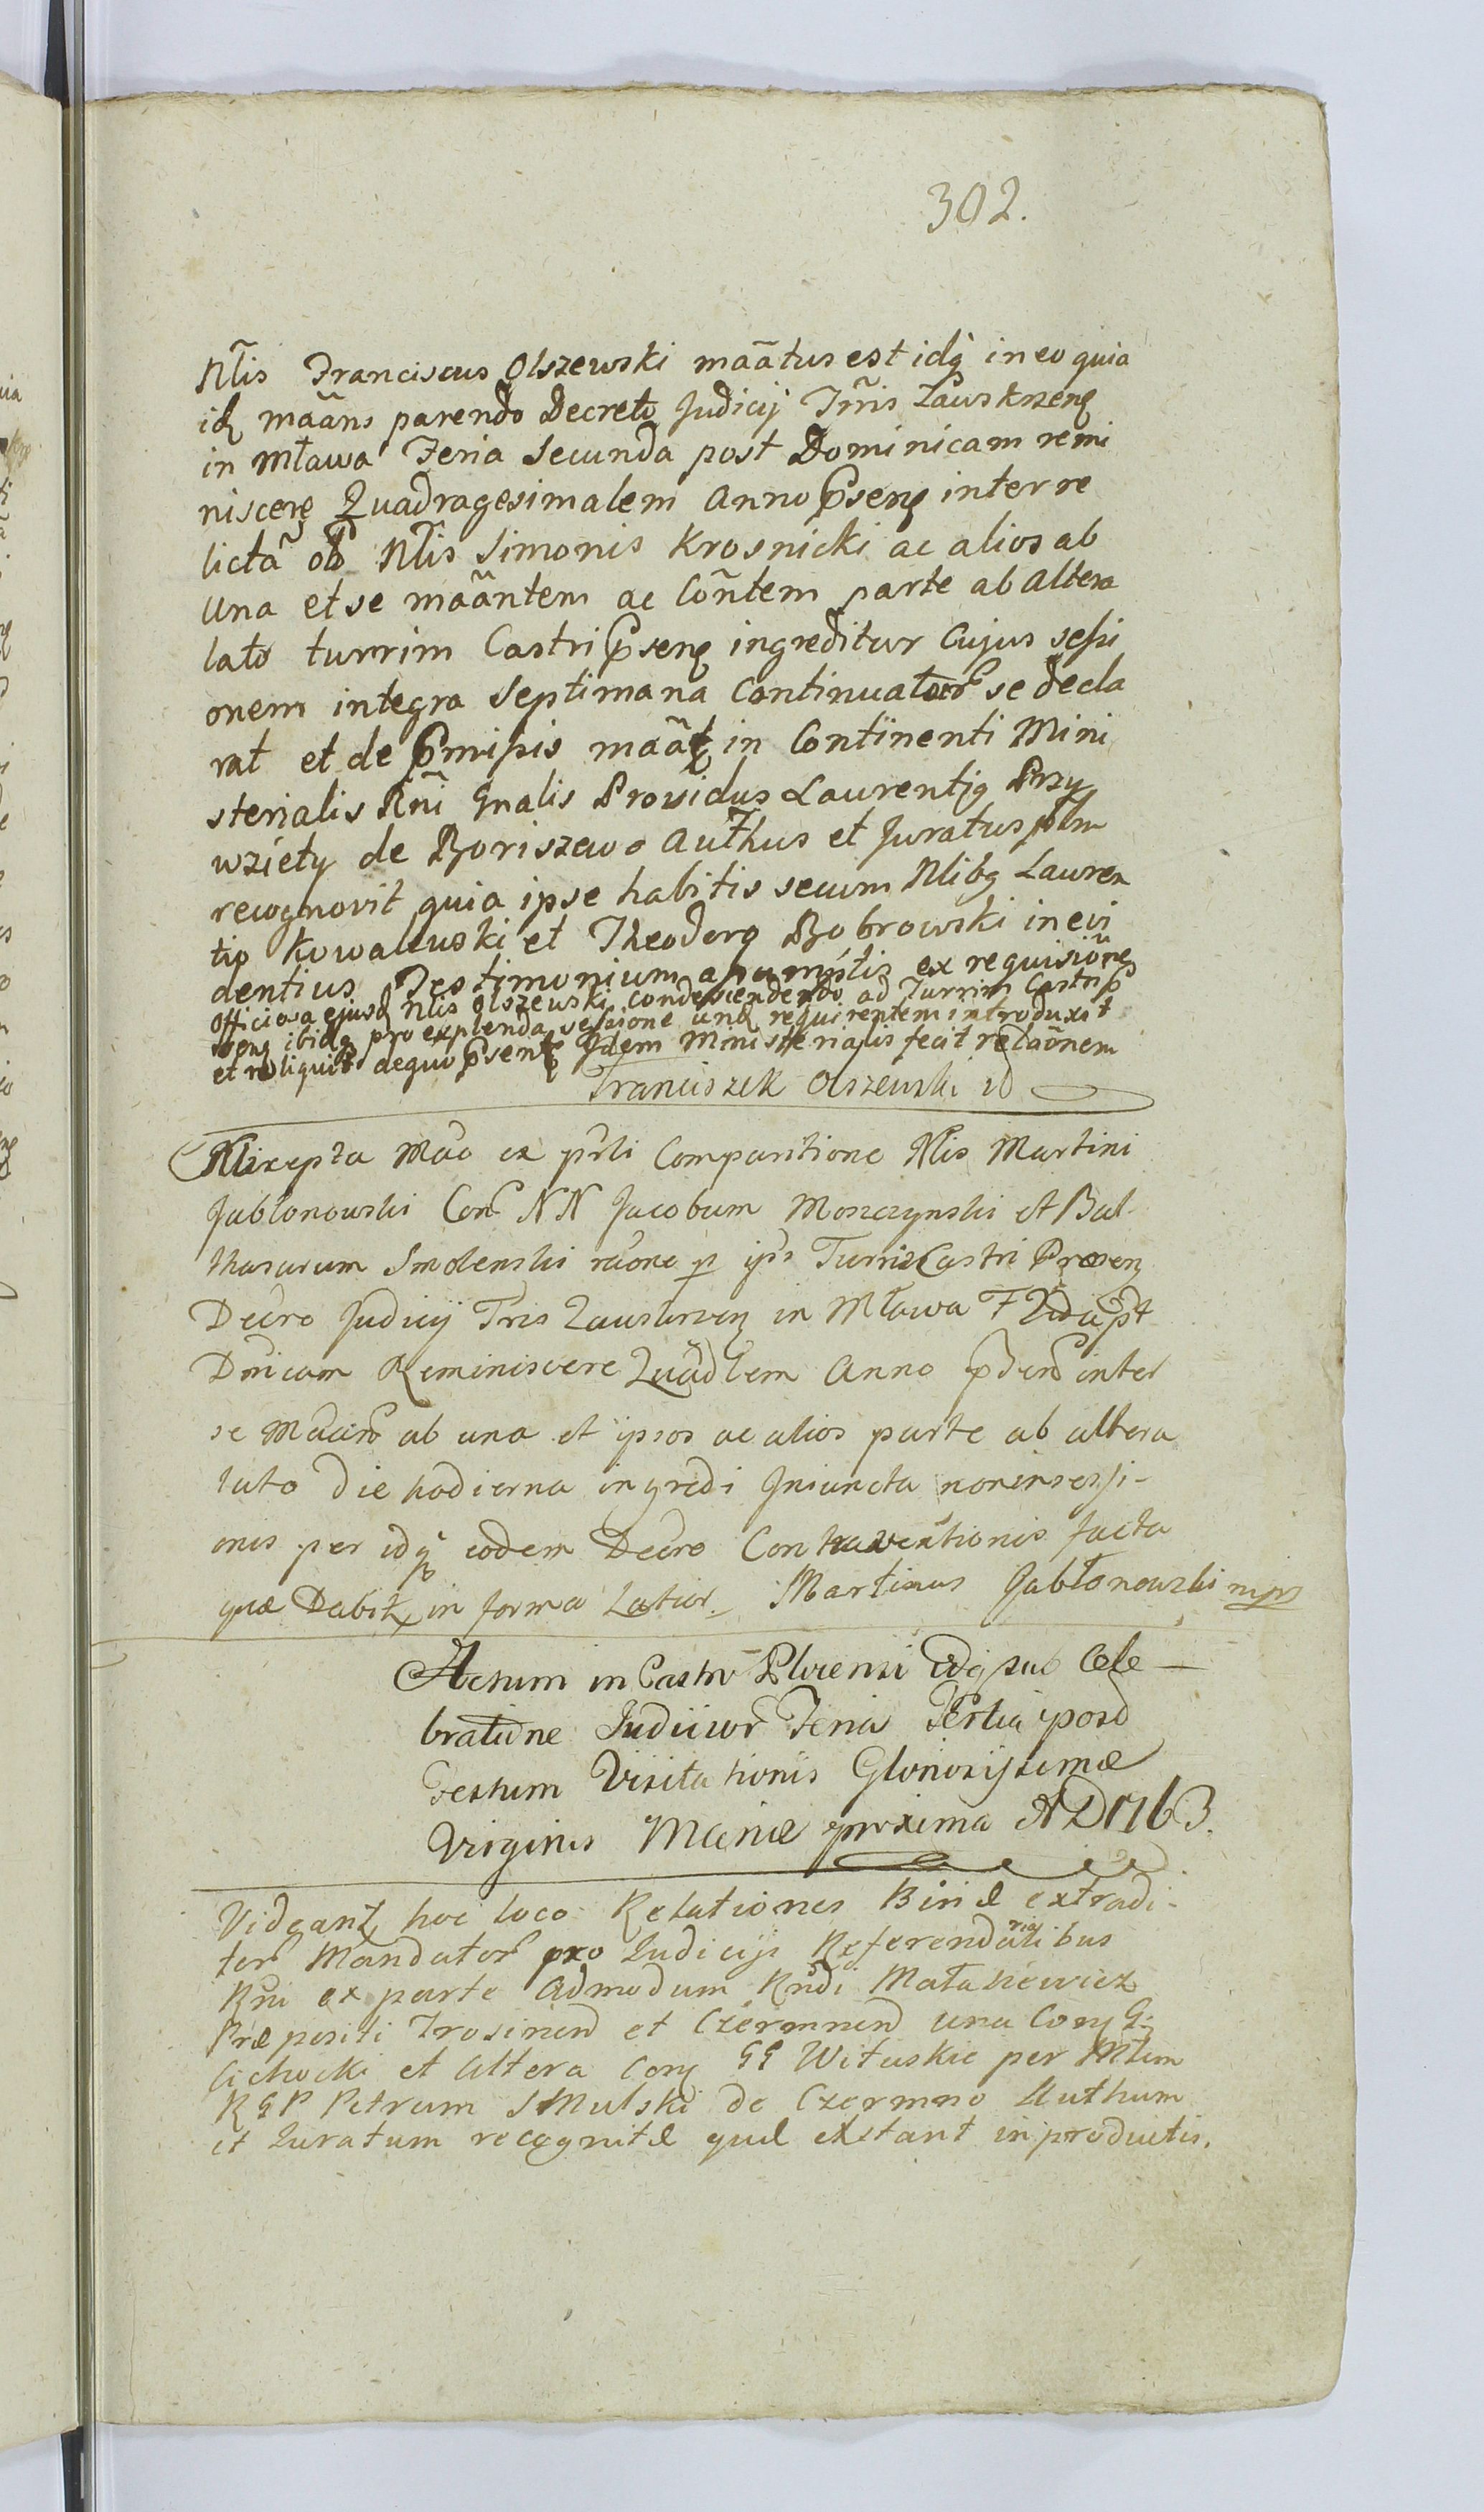 302.
Nlis Franciscus Olszewski maãtus est idq in eo quia
idq maãns parendo Decreto Judicij Trris Zawskrzenę
in Mława Feria Secunda post Dominicam remi
niscere Quadragesimalem Anno Psenę inter re
lictã olb Nlis Simonis Krosnicki ac alios ab
Una et se maãntem ac Cõntem parte ab altera
lato turrim Castri Psenę ingreditur Cujus sessi
onem integra Septimana Continuatur se decla
rat et de Pmissis maãt in Continenti Mini
sterialis Rñi Gnalis Providus Laurentig Przy
wzięty de Boriszewo Authus et Juratus plm
recognovit quia ipse habitis secum Nlibg Lauren
tio Kowalewski et Theodoro Bobrowski in evi
dentius Testimonium ex requisiõne
Officiosa ejusd Nlis Olszewski Condescendendo ad Turrim Castri P
senę ibidq pro explenda sessione requirentem introduxit
et reliquit dequo Psentę Idem Ministerialis fecit relaõnem
Franciszek Olszewski
Mão ex prli Comparitione Nlis Martini
Jabłonowski Con NN Jacobum Moszczynski et Bal
thasarum Smolenski rãone p ips Turris Castri Præsenę
Decro Judicij Trris Zawskrzenę in Mława F 2da pt
Dnicam Reminiscere Quadlem Anno inter
se ab una et ipsos ac alios parte ab altera
lato die hodierna ingredi Iniuncta non insessi-
onis per idq eodem Decro Contraventionis facta
quæ Dabitę in forma Latior. Martinus Jabłonowski mps
Actum in Castro Plocensi idq sub Cele-
bratione Judiciorr Feria Tertia post
Festum Visitationis Gloriosissimæ
Virginis Mariæ proxima AD 1763.
Videantę hoc loco Relationes Binæ extradi-
torr Mandatorr pro Judicijs Referendarialibus
Rñi ex parte Admodum Rñdi Matasiewicz
Præpositi Trosinen et Czermnen una Conę G.
Cichocki et Altera Conę GG Wituskie per Mtem
RGP Petrum SMulski de Czermno Authum
et Juratum recognitæ quæ exstant in productis.